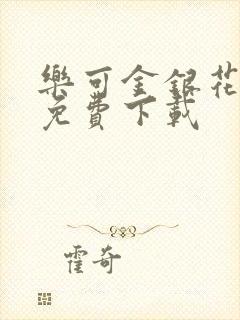 樂可金銀花
免費下載
霍奇